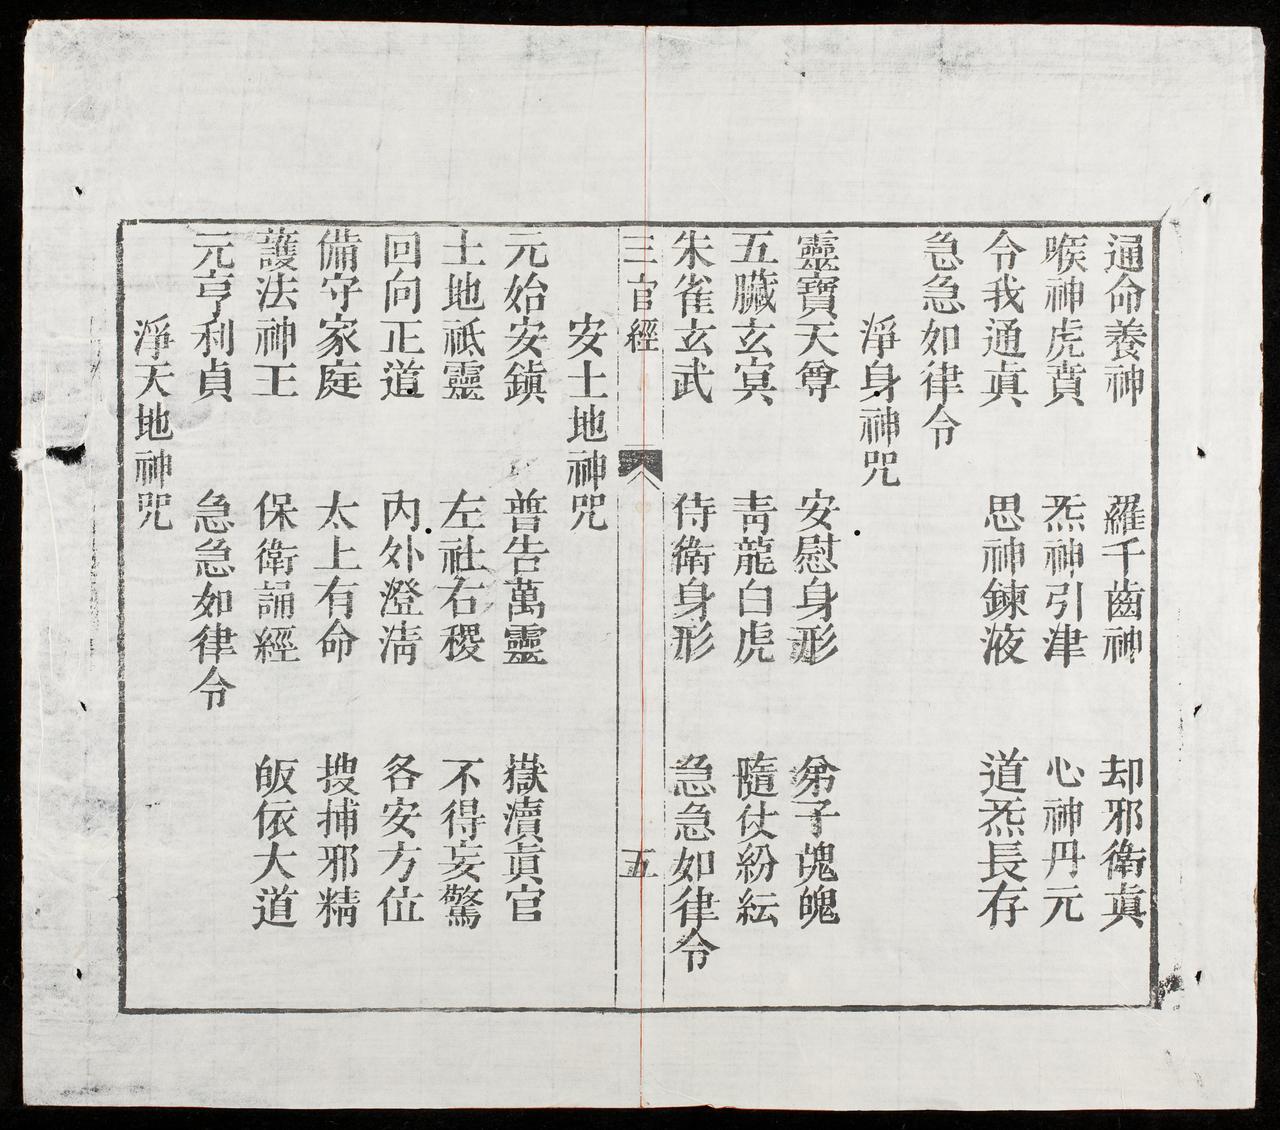 通命養神 羅千齒神 却邪衛眞
喉神虎賁 炁神引津 心神丹元
令我通眞 思神鍊液 道炁長存
急急如律令
淨身神咒
靈寶天尊 安慰身形 弟子魂魄
五臟玄冥 靑龍白虎 隨仗紛紜
朱雀玄武 侍衛身形 急急如律令
三官經 五
安土地神咒
元始安鎭 普告萬靈 嶽瀆眞官
土地祗靈 左社右稷 不得妄驚
回向正道 內外澄淸 各安方位
備守家庭 太上有命 搜捕邪精
護法神王 保衛誦經 皈依大道
元亨利貞 急急如律令
淨天地神咒